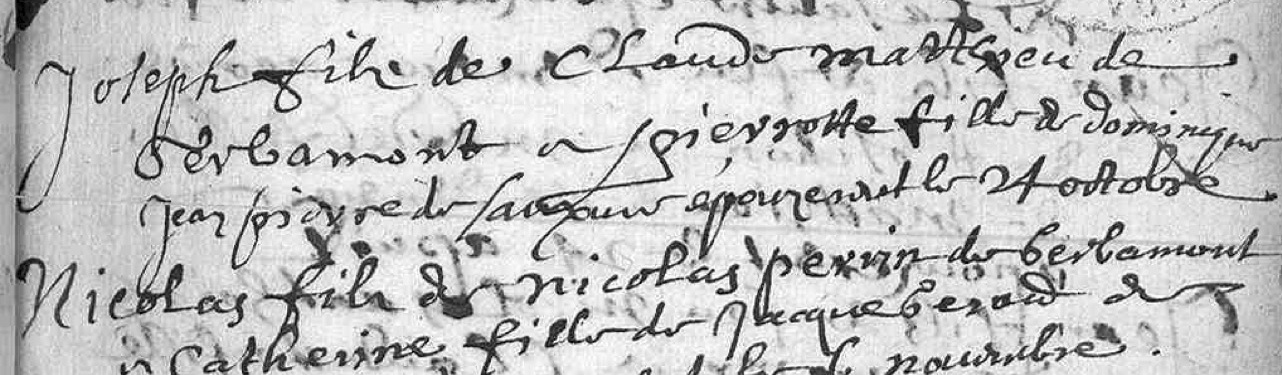 Joseph filz de Claude Mathieu de
Gerbamont a pierrotte fille de dominique
Jean pierre de épouzerent le 24 octobre
Nicolas filz de nicolas perrin de Gerbamont
a Catherine fille de Jacque Gerard de
le nouembre.